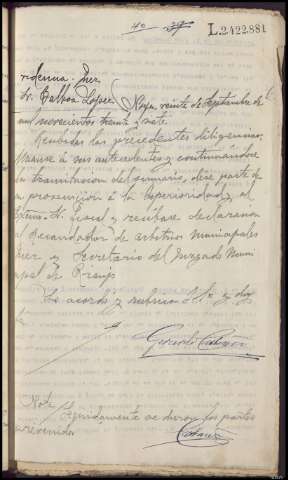 40 39 L.2422,881
videncia. Juez
Sr. Balboa López. Rioja, veinte de Septiembre de
mil novecientos treinta y siete.
Recibidas las precedentes diligencias,
únanse á sus antecedentes y continuándose
la tramitación del sumario, dése parte de
su prosecución á la Superioridad y al
Excmo. Sr. Fiscal y recíbase declaración
al Recaudador de arbitrios municipales
Juez y Secretario del Juzgado Muni
cipal de
Lo acordó y rubrica S. Sª. y doy
fé.
Gerardo
Nota
Seguidamente se dieron los partes
prevenidos